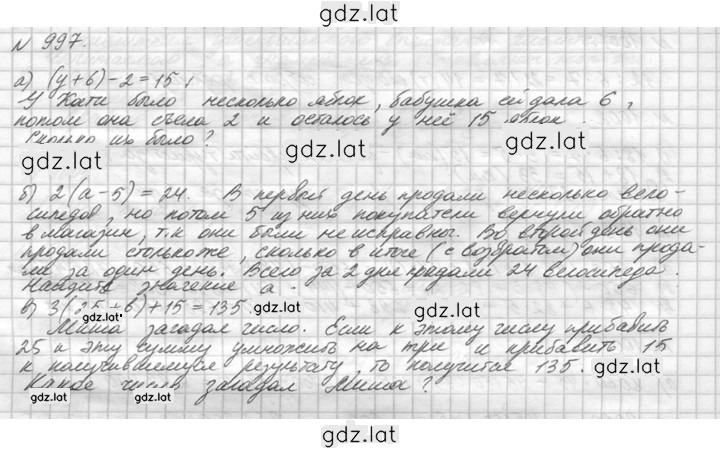 gdz.lat
N 997.
а) (у+6)-2=15;
У Кати было несколько яблок, бабушка ей дала 6,
потом она съела 2 и осталось у неё 15 яблок.
Сколько их было?
gdz.lat gdz.lat
б) 2(а-5)=24. В первый день продали несколько вело-
сипедов, но потом 5 из них покупатели вернули обратно
в магазин, т.к они были неисправног. Во второй день они
продали столько же, сколько в итоге (с возвратом) они прода-
ли за один день. Всего за 2 дня продали 24 велосипеда.
Найдите значение а.
gdz.lat gdz.lat
в) 3(25+в)+15=135. gdz.lat
gdz.lat
Миша загадал число. Если к этому числу прибавить
25 и эту сумму умножить на три и прибавить 15
к получившемуся результату, то получится 135.
Какое число загадал Миша?
gdz.lat gdz.lat
gdz.lat